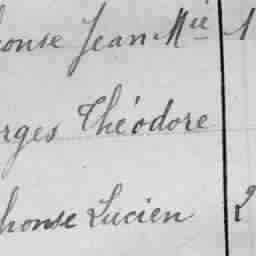 onse Jean Mie 1
rges Théodore
honse Lucien 2